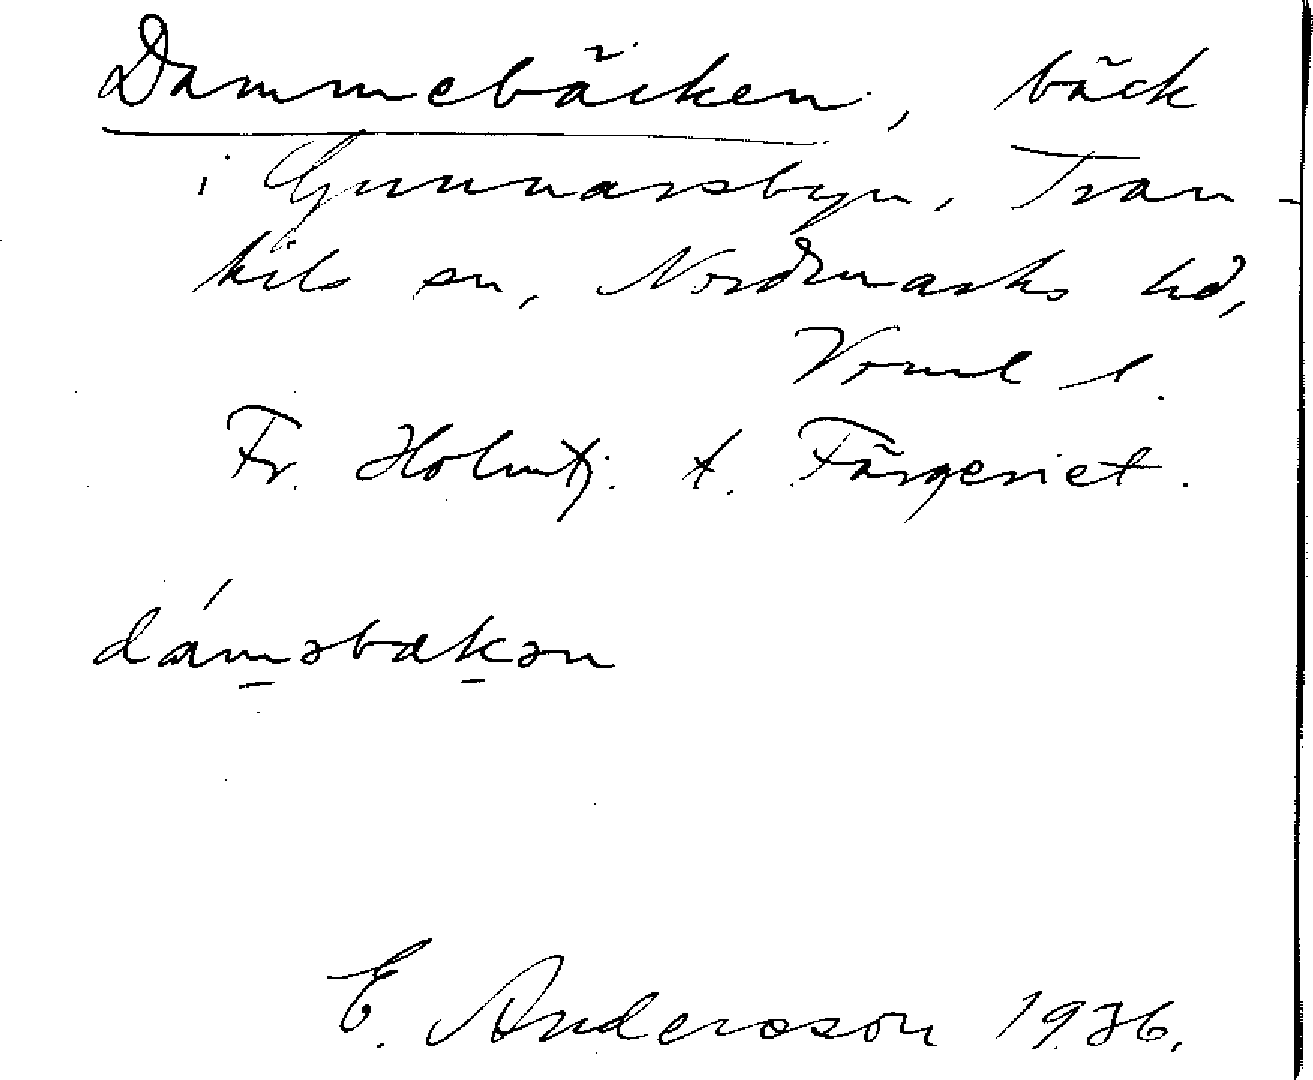 Dammebäcken, bäck
i Gunnarsbyn, Tran-
kils sn, Nordmarks hd,
Vrml l.
Fr. Holmtj. t. Färgeriet.
dám̱əbæḵən
E. Andersson 1936.